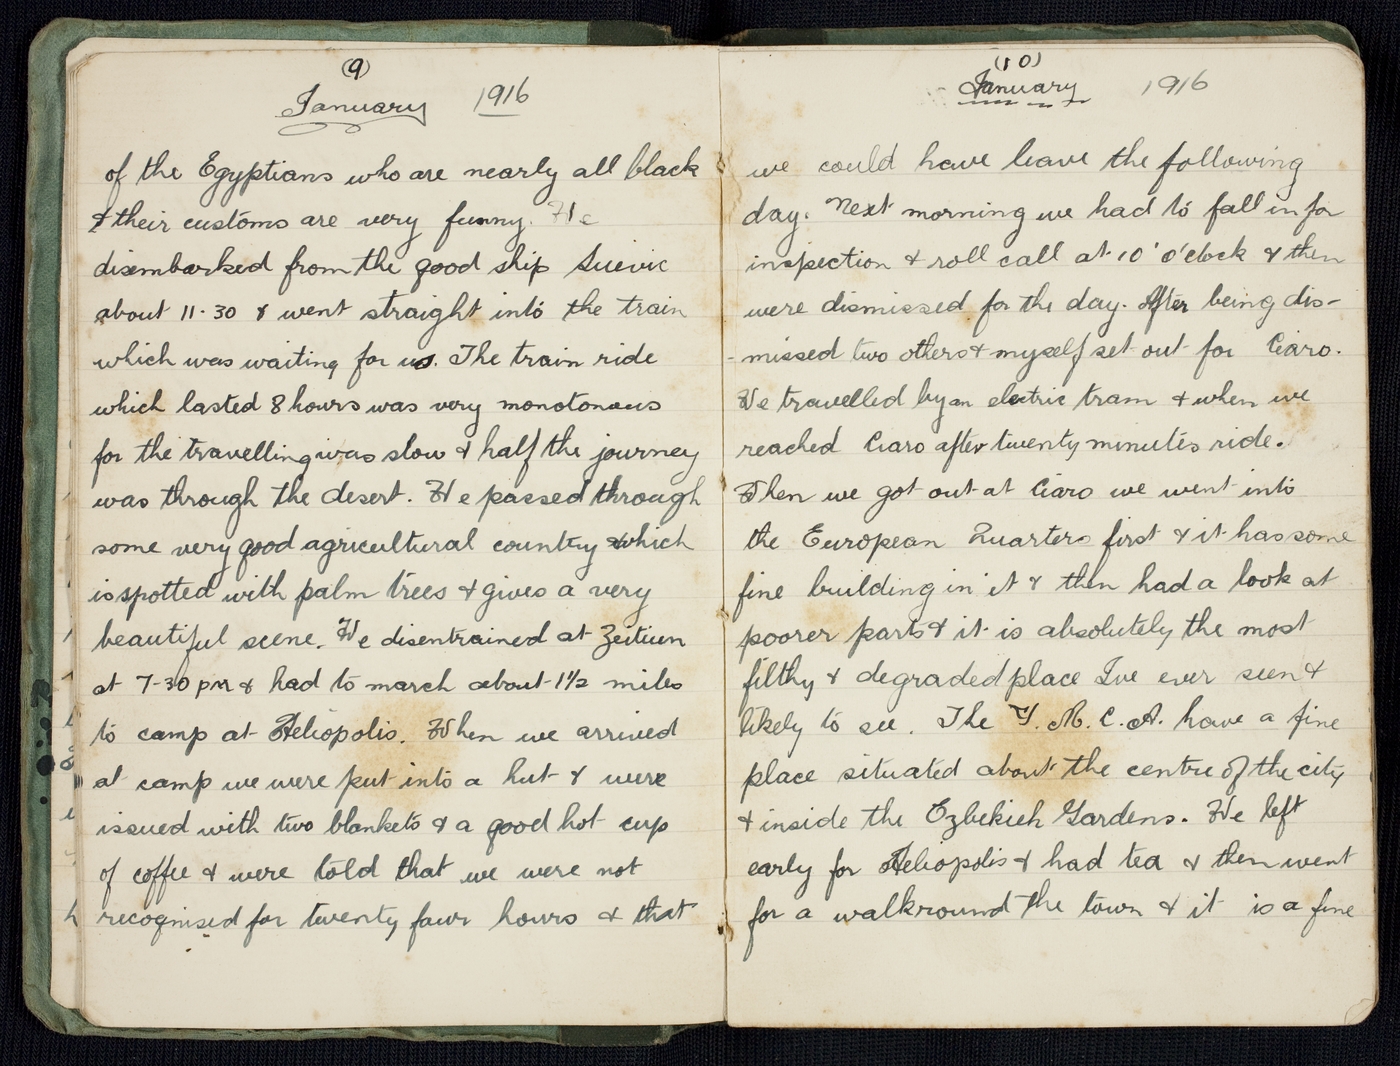 (9)
January 1916
of the Egyptians who are nearly all black
& their customs are very funny. We
disembarked from the good ship Suevic
about 11.30 & went straight into the train
which was waiting for us. The train ride
which lasted 8 hours was very monotonous
for the travelling was slow & half the journey
was through the desert. We passed through
some very good agricultural country which
is spotted with palm trees & gives a very
beautiful scene. We disentrained at Zeitiun
at 7-30 pm & had to march about 1½ miles
to camp at Heliopolis. When we arrived
at camp we were put into a hut & were
issued with two blankets & a good hot cup
of coffee & were told that we were not
recognised for twenty four hours & that
(10)
January 1916
we could have leave the following
day. Next morning we had to fall in for
inspection & roll call at 10' o'clock & then
were dismissed for the day. After being dis-
-missed two others & myself set out for Ciaro.
We travelled by an electric tram & when we
reached Ciaro after twenty minutes ride.
When we got out at Ciaro we went into
the European Quarters first & it has some
fine building in it & then had a look at
poorer parts & it is absolutely the most
filthy & degraded place Ive ever seen &
likely to see. The Y.M.C.A. have a fine
place situated about the centre of the city
& inside the Ezbekieh Gardens. We left
early for Heliopolis & had tea & then went
for a walk round the town & it is a fine